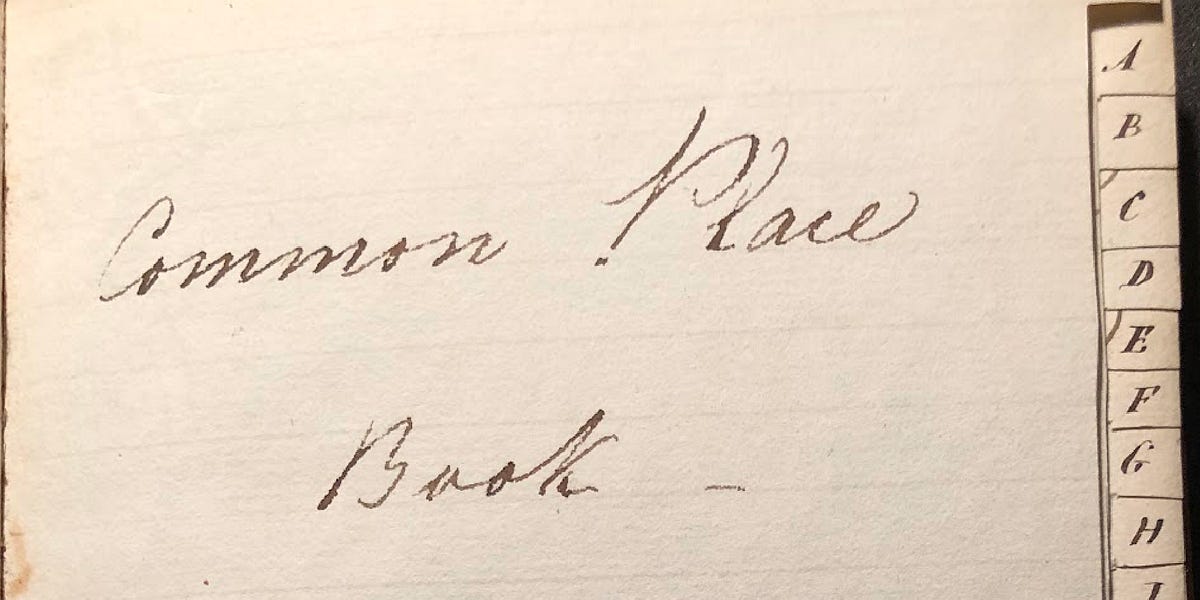 Common Place
Book -
A
B
C
D
E
F
G
H
I